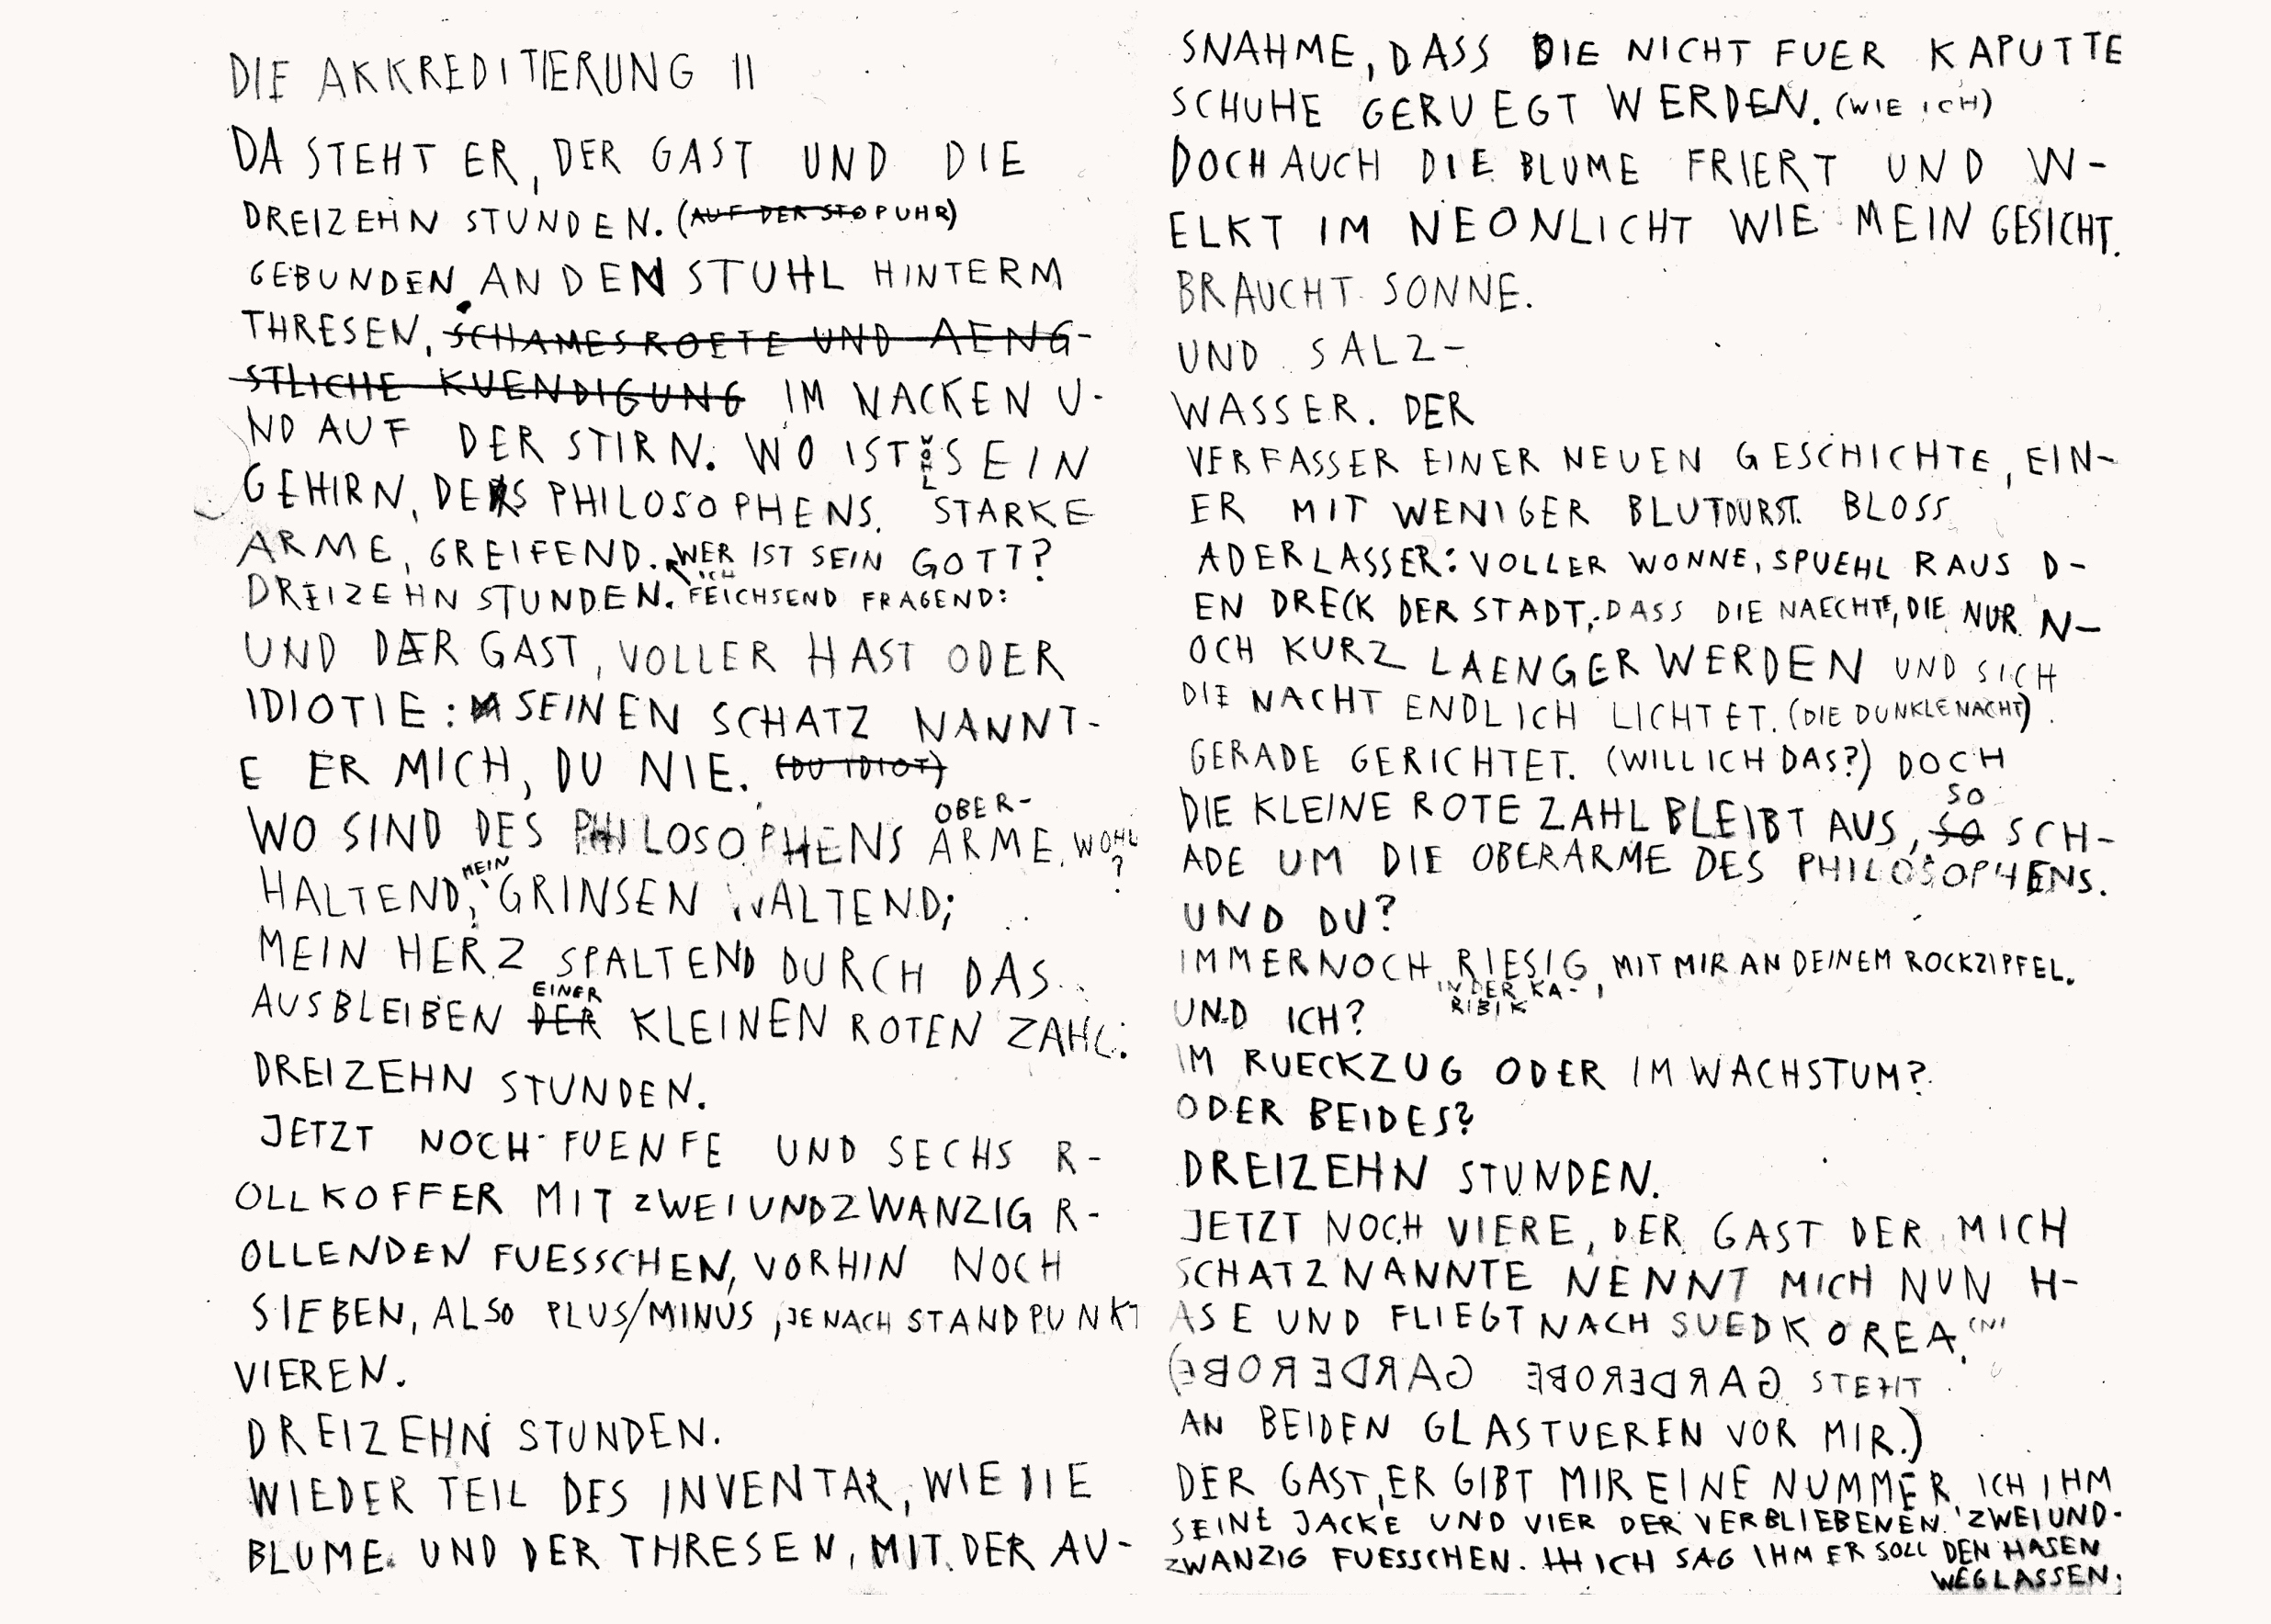 DIE AKKREDITIERUNG II
DA STEHT ER, DER GAST UND DIE
DREIZEHN STUNDEN. (AUF DER STOPUHR)
GEBUNDEN AN DEN STUHL HINTERM
THRESEN, SCHAMESROETE UND AENG-
STLICHE KUENDIGUNG IM NACKEN U-
ND AUF DER STIRN. WO IST WOHL SEIN
GEHIRN, DES PHILOSOPHENS. STARKE
ARME, GREIFEND. WER IST SEIN GOTT?
DREIZEHN STUNDEN. ICH FEICHSEND FRAGEND:
UND DER GAST, VOLLER HAST ODER
IDIOTIE: SEINEN SCHATZ NANNT-
E ER MICH, DU NIE. (DU IDIOT)
WO SIND DES PHILOSOPHENS OBER-
ARME, WOHL?
HALTEND, MEIN GRINSEN WALTEND;
MEIN HERZ SPALTEND DURCH DAS
AUSBLEIBEN DER EINER KLEINEN ROTEN ZAHL.
DREIZEHN STUNDEN.
JETZT NOCH FUENFE UND SECHS R-
OLLKOFFER MIT ZWEIUNDZWANZIG R-
OLLENDEN FUESSCHEN, VORHIN NOCH
SIEBEN, ALSO PLUS/MINUS, JE NACH STANDPUNKT
VIEREN.
DREIZEHN STUNDEN.
WIEDER TEIL DES INVENTAR, WIE DIE
BLUME UND DER THRESEN, MIT DER AU-
SNAHME, DASS DIE NICHT FUER KAPUTTE
SCHUHE GERUEGT WERDEN. (WIE ICH)
DOCH AUCH DIE BLUME FRIERT UND W-
ELKT IM NEONLICHT WIE MEIN GESICHT.
BRAUCHT SONNE.
UND SALZ-
WASSER. DER
VERFASSER EINER NEUEN GESCHICHTE, EIN-
ER MIT WENIGER BLUTDURST. BLOSS
ADERLASSER: VOLLER WONNE, SPUEHL RAUS D-
EN DRECK DER STADT, DASS DIE NAECHTE, DIE NUR N-
OCH KURZ LAENGER WERDEN UND SICH
DIE NACHT ENDLICH LICHTET. (DIE DUNKLE NACHT).
GERADE GERICHTET. (WILL ICH DAS?) DOCH
DIE KLEINE ROTE ZAHL BLEIBT AUS, SO SO SCH-
ADE UM DIE OBERARME DES PHILOSOPHENS.
UND DU?
IMMERNOCH RIESIG, MIT MIR AN DEINEM ROCKZIPFEL.
IN DER KA-
RIBIK
UND ICH?
IM RUECKZUG ODER IM WACHSTUM?
ODER BEIDES?
DREIZEHN STUNDEN.
JETZT NOCH VIERE, DER GAST DER MICH
SCHATZ NANNTE NENNT MICH NUN H-
ASE UND FLIEGT NACH SUEDKOREA.
(GARDEROBE GARDEROBE STEHT
AN BEIDEN GLASTUEREN VOR MIR.)
DER GAST, ER GIBT MIR EINE NUMMER, ICH IHM
SEINE JACKE UND VIER DER VERBLIEBENEN ZWEIUND-
ZWANZIG FUESSCHEN. ICH SAG IHM ER SOLL DEN HASEN
WEGLASSEN.